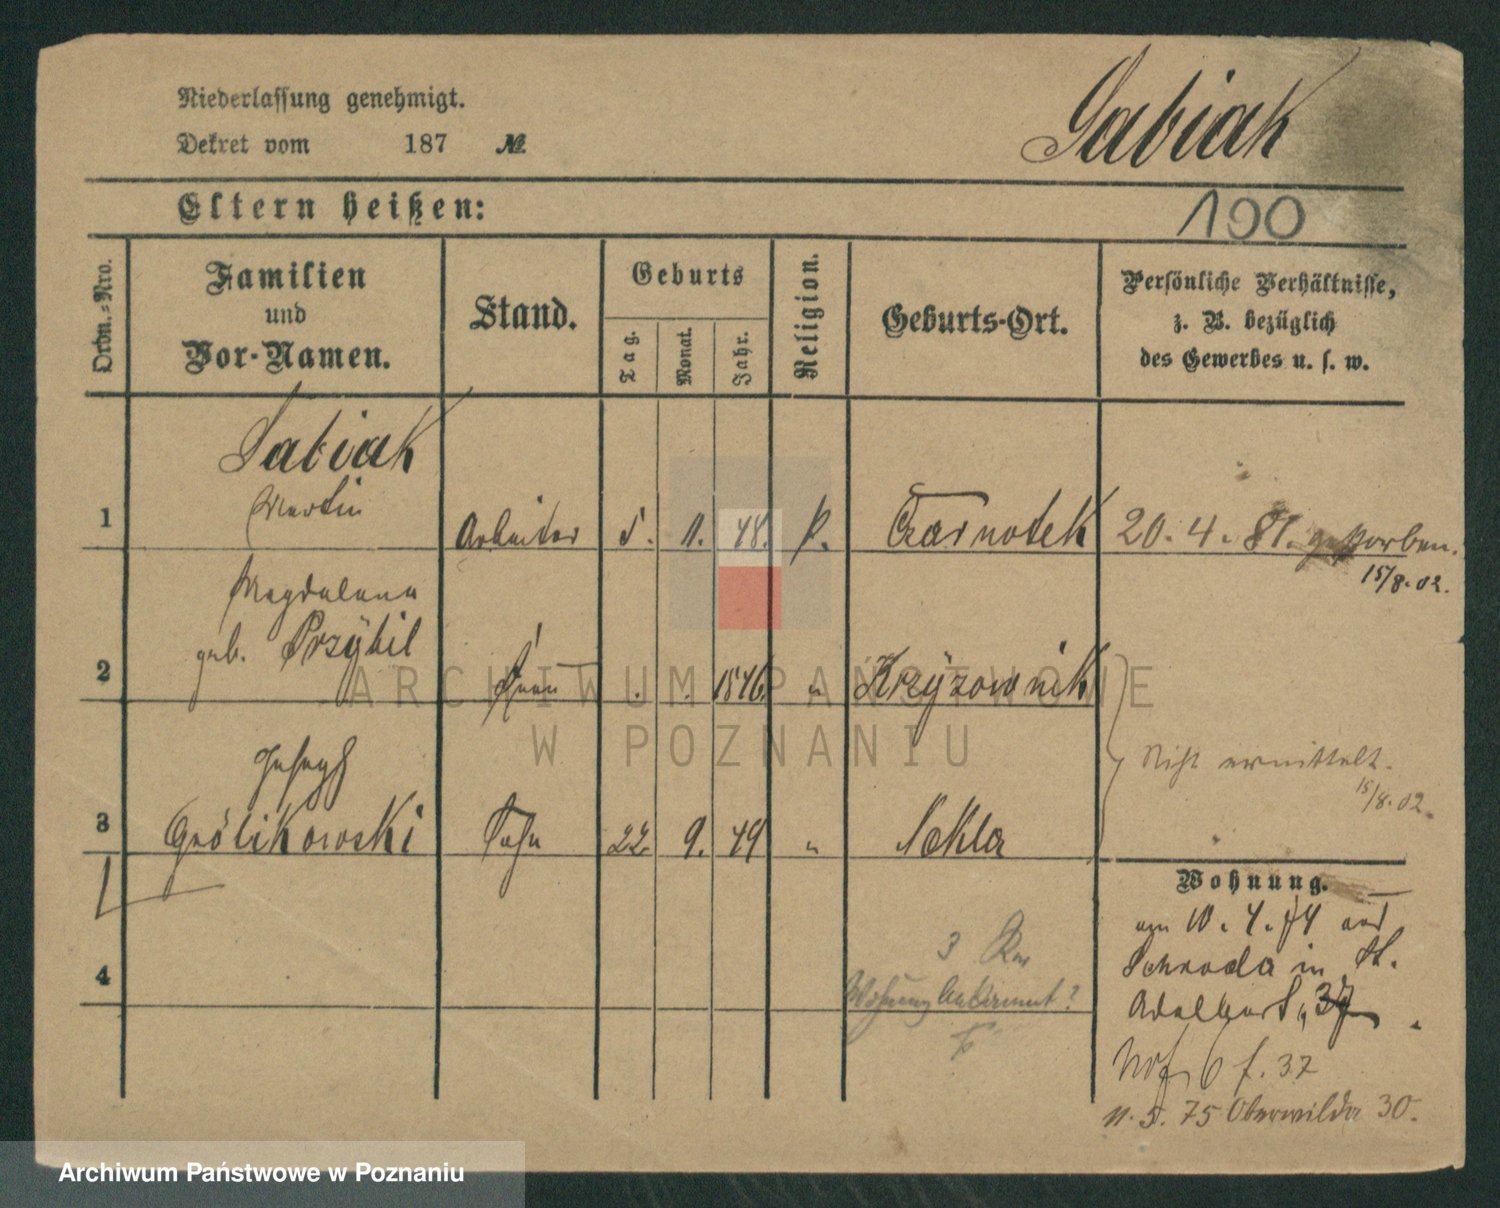 Niederlassung genehmigt.
Dekret vom 187 №
Sabiak
Eltern heißen:
190
Ordn.-Nro.
Familien
und
Vor-Namen.
Stand.
Geburts
Tag.
Monat.
Jahr.
Religion.
Geburts-Ort.
Persönliche Verhältnisse,
z. B. bezüglich
des Gewerbes u. s. w.
Sabiak
Martin
1 Arbeiter 5. 11. 48. k. Czarnotek 20. 4. 81. gestorben.
15/8. 02.
Magdalena
geb. Przybil
2 Frau 1846. " Krzyzownik
Nicht ermittelt.
15/8. 02.
Joseph
3 Grölikowski Sohn 22. 9. 49 " Nekla
Wohnung.
am 10. 4. 74 aus
Schroda in St.
Adalbert 37
4
3
Wohnung bekannt?
6 f. 37
11. 5. 75 Oberwilda 30.
ARCHIWUM PAŃSTWOWE
W POZNANIU
Archiwum Państwowe w Poznaniu